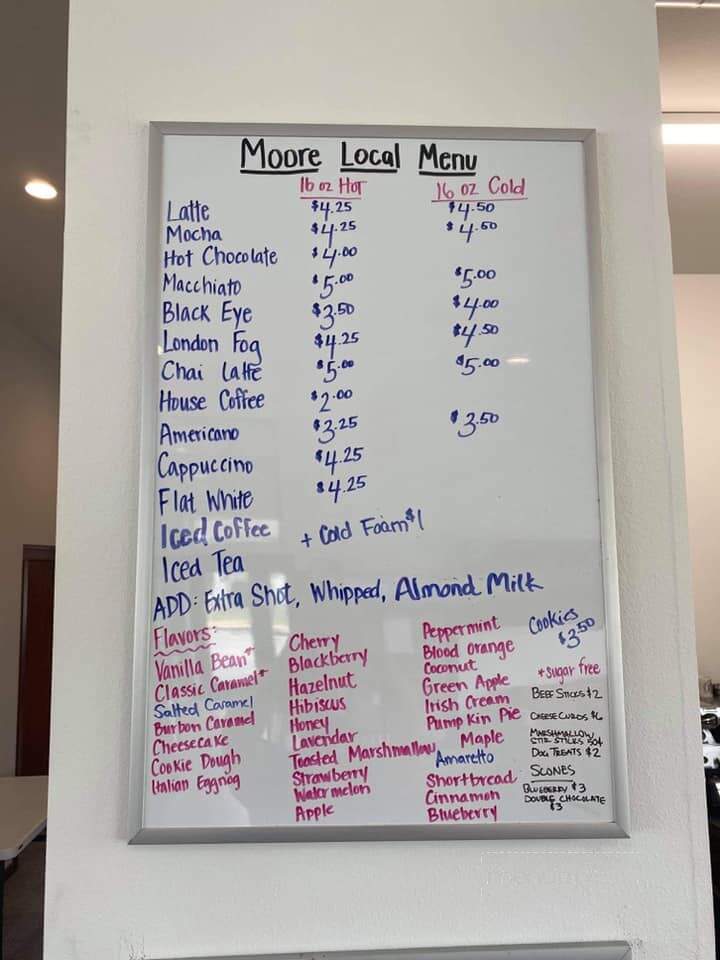 Moore Local Menu
16 oz Hot 16 oz Cold
Latte $4.25 $4.50
Mocha $4.25 $4.50
Hot Chocolate $4.00
Macchiato $5.00 $5.00
Black Eye $3.50 $4.00
London Fog $4.25 $4.50
Chai Latte $5.00 $5.00
House Coffee $2.00
Americano $3.25 $3.50
Cappuccino $4.25
Flat White $4.25
Iced Coffee + Cold Foam $1
Iced Tea
ADD: Extra Shot, Whipped, Almond Milk
Flavors:
Vanilla Bean*
Classic Caramel*
Salted Caramel
Burbon Caramel
Cheesecake
Cookie Dough
Italian Eggnog
Cherry
Blackberry
Hazelnut
Hibiscus
Honey
Lavendar
Toasted Marshmallow
Strawberry
Watermelon
Apple
Peppermint
Blood Orange
Coconut
Green Apple
Irish Cream
Pumpkin Pie
Maple
Amaretto
Shortbread
Cinnamon
Blueberry
Cookies
$3.50
*sugar free
Beef Sticks $2
Cheese Curds $6
Marshmallow
Stir Sticks 50¢
Dog Treats $2
Scones
Blueberry $3
Double Chocolate
$3